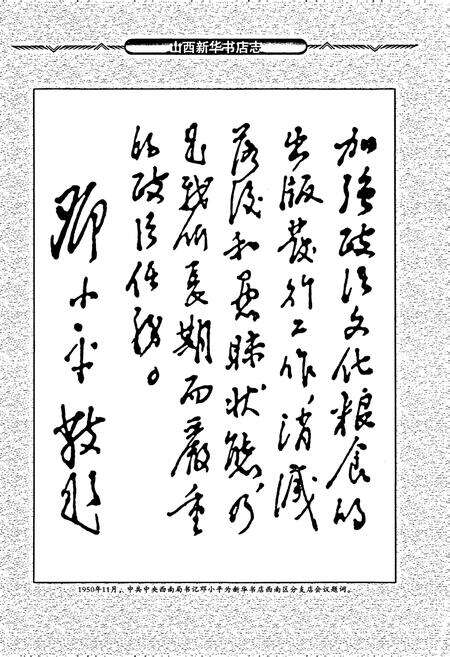 山西新华书店志
加强政治文化粮食的
出版發行工作,消滅
落後和愚昧状態,乃
是我們長期而嚴重
的政治任務。
鄧小平 敬题
1950年11月,中共中央西南局书记邓小平为新华书店西南区分支店会议题词。